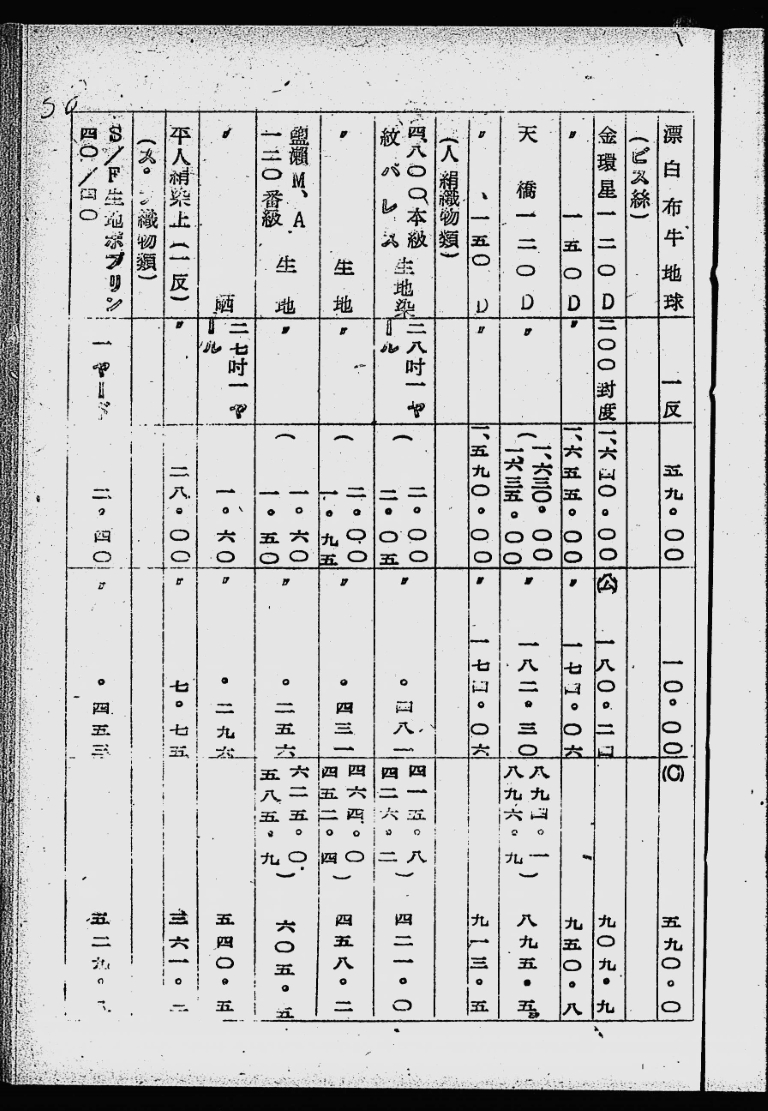 漂白布牛地球 一反 五九。〇〇 一〇。〇〇 (C) 五九〇。〇
(ビス絲)
金環星一二〇D 二〇〇封度 一、六四〇。〇〇 (公) 一八〇。二四 九〇九。九
〃 一五〇D 〃 一、六五五。〇〇 〃 一七四。〇六 九五〇。八
天橋一二〇D 〃 ( 一、六三〇。〇〇 一六三五。〇〇 〃 一八二。三〇 八九四。一 八九六。九 ) 八九五。五
〃、一五〇D 〃 一、五九〇。〇〇 〃 一七四。〇六 九一三。五
(人絹織物類)
四八〇〇本級
紋パレス 生地染 二八吋一ヤール ( 二。〇〇 二。〇五 〃 。四八一 四一五。八 四二六。二 ) 四二一。〇
〃 生地 〃 ( 二。〇〇 一。九五 〃 。四三一 四六四。〇 四五二。四 ) 四五八。二
塩瀬M、A
一二〇番級 生地 〃 ( 一。六〇 一。五〇 〃 。二五六 六二五。〇 五八五。九 ) 六〇五。五
〃 晒 二七吋一ヤール 一。六〇 〃 。二九六 五四〇。五
平人絹染上(一反) 〃 二八。〇〇 〃 七。七五 三六一。二
(ス・フ織物類)
S/F生地ポプリン
四〇/四〇 一ヤード 二。四〇 〃 。四五三 五二九。